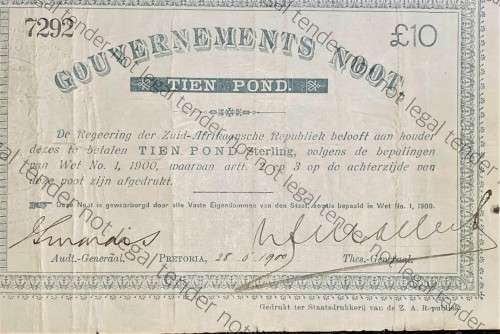 7292 £10
GOUVERNEMENTS NOOT.
TIEN POND.
De Regeering der Zuid-Afrikaansche Republiek belooft aan houder
dezes te betalen TIEN POND Sterling, volgens de bepalingen
van Wet No. 1, 1900, waarvan artt. 2 en 3 op de achterzijde van
deze noot zijn afgedrukt.
Deze Noot is gewaarborgd door alle Vaste Eigendommen van den Staat, zooals bepaald in Wet No. 1, 1900.
Audt.-Generaal. PRETORIA, 28 5 1900 Thes.-Generaal.
Gedrukt ter Staatsdrukkerij van de Z. A. Republiek
not legal tender